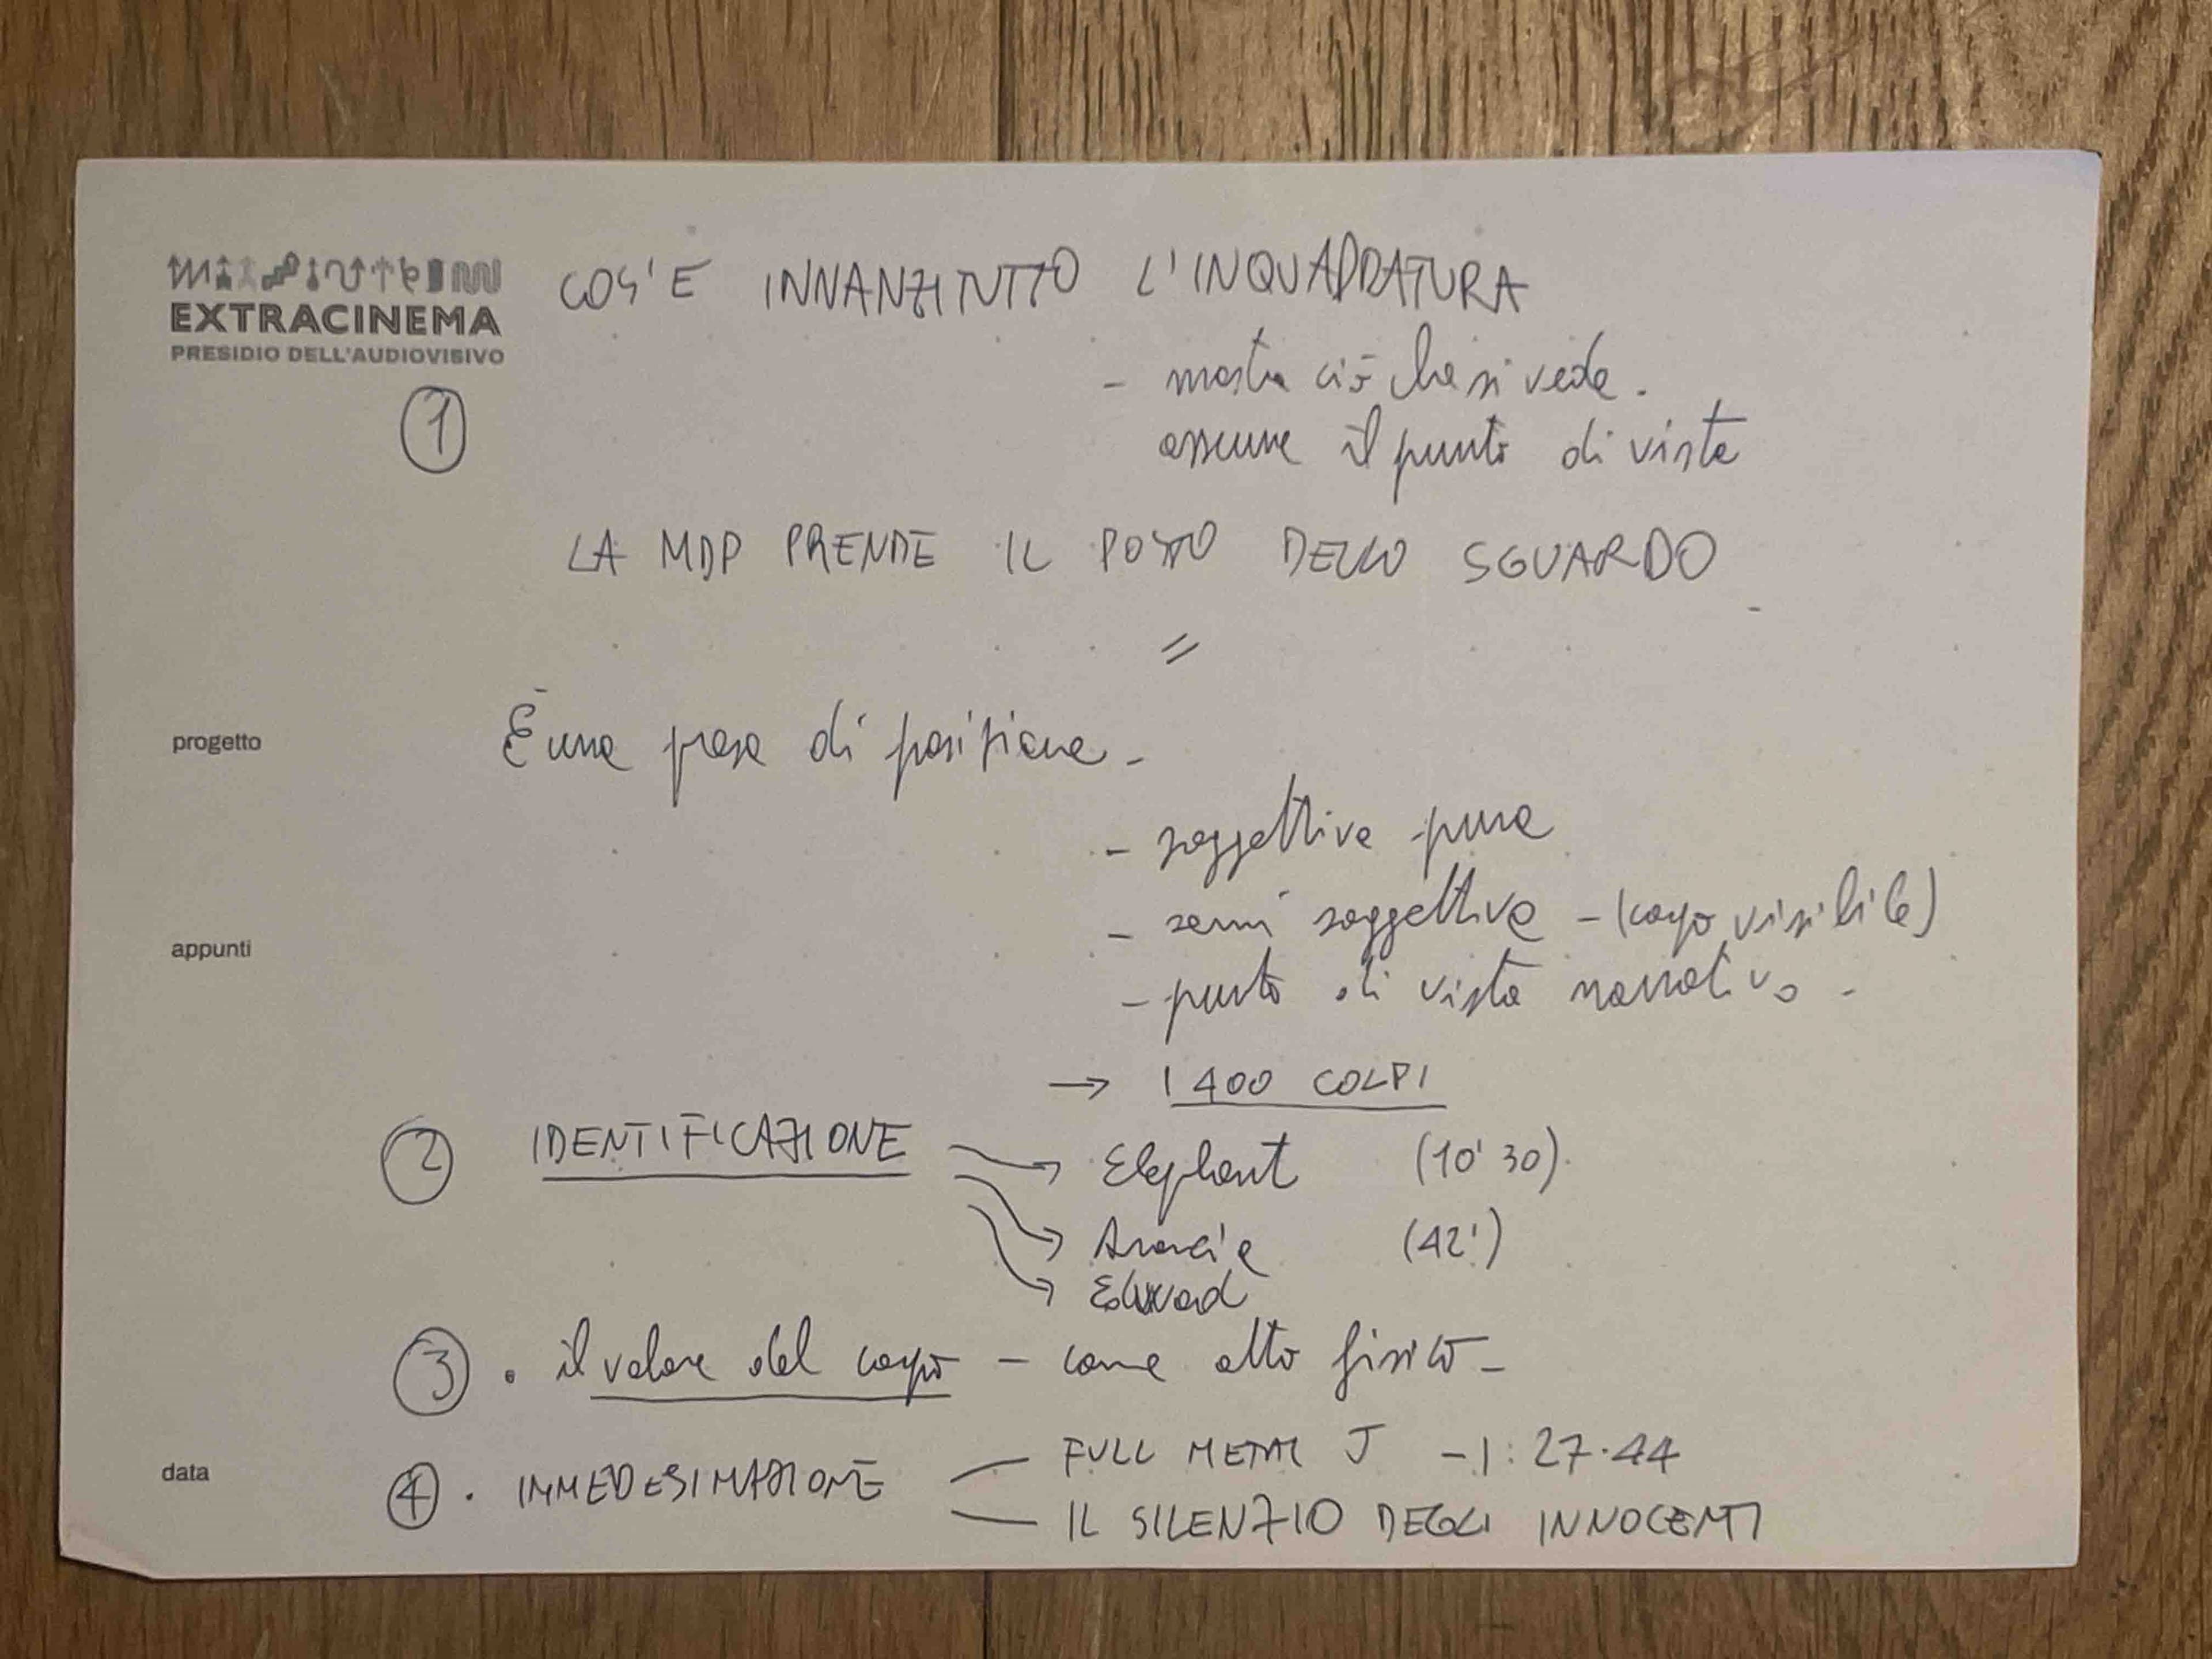 EXTRACINEMA
PRESIDIO DELL'AUDIOVISIVO
COS'E INNANZITUTTO L'INQUADRATURA
- mostra ciò che si vede.
assume il punto di vista
①
LA MDP PRENDE IL POSTO DELLO SGUARDO
=
progetto
È una presa di posizione -
- soggettiva pura
- semi soggettiva - (corpo visibile)
appunti
- punto di vista narrativo -
→ I 400 COLPI
② IDENTIFICAZIONE → Elephant (10' 30)
→ (42')
→
③ · il valore del corpo - come atto fisico -
data
④ · IMMEDESIMAZIONE - FULL METAL J - 1:27.44
- IL SILENZIO DEGLI INNOCENTI